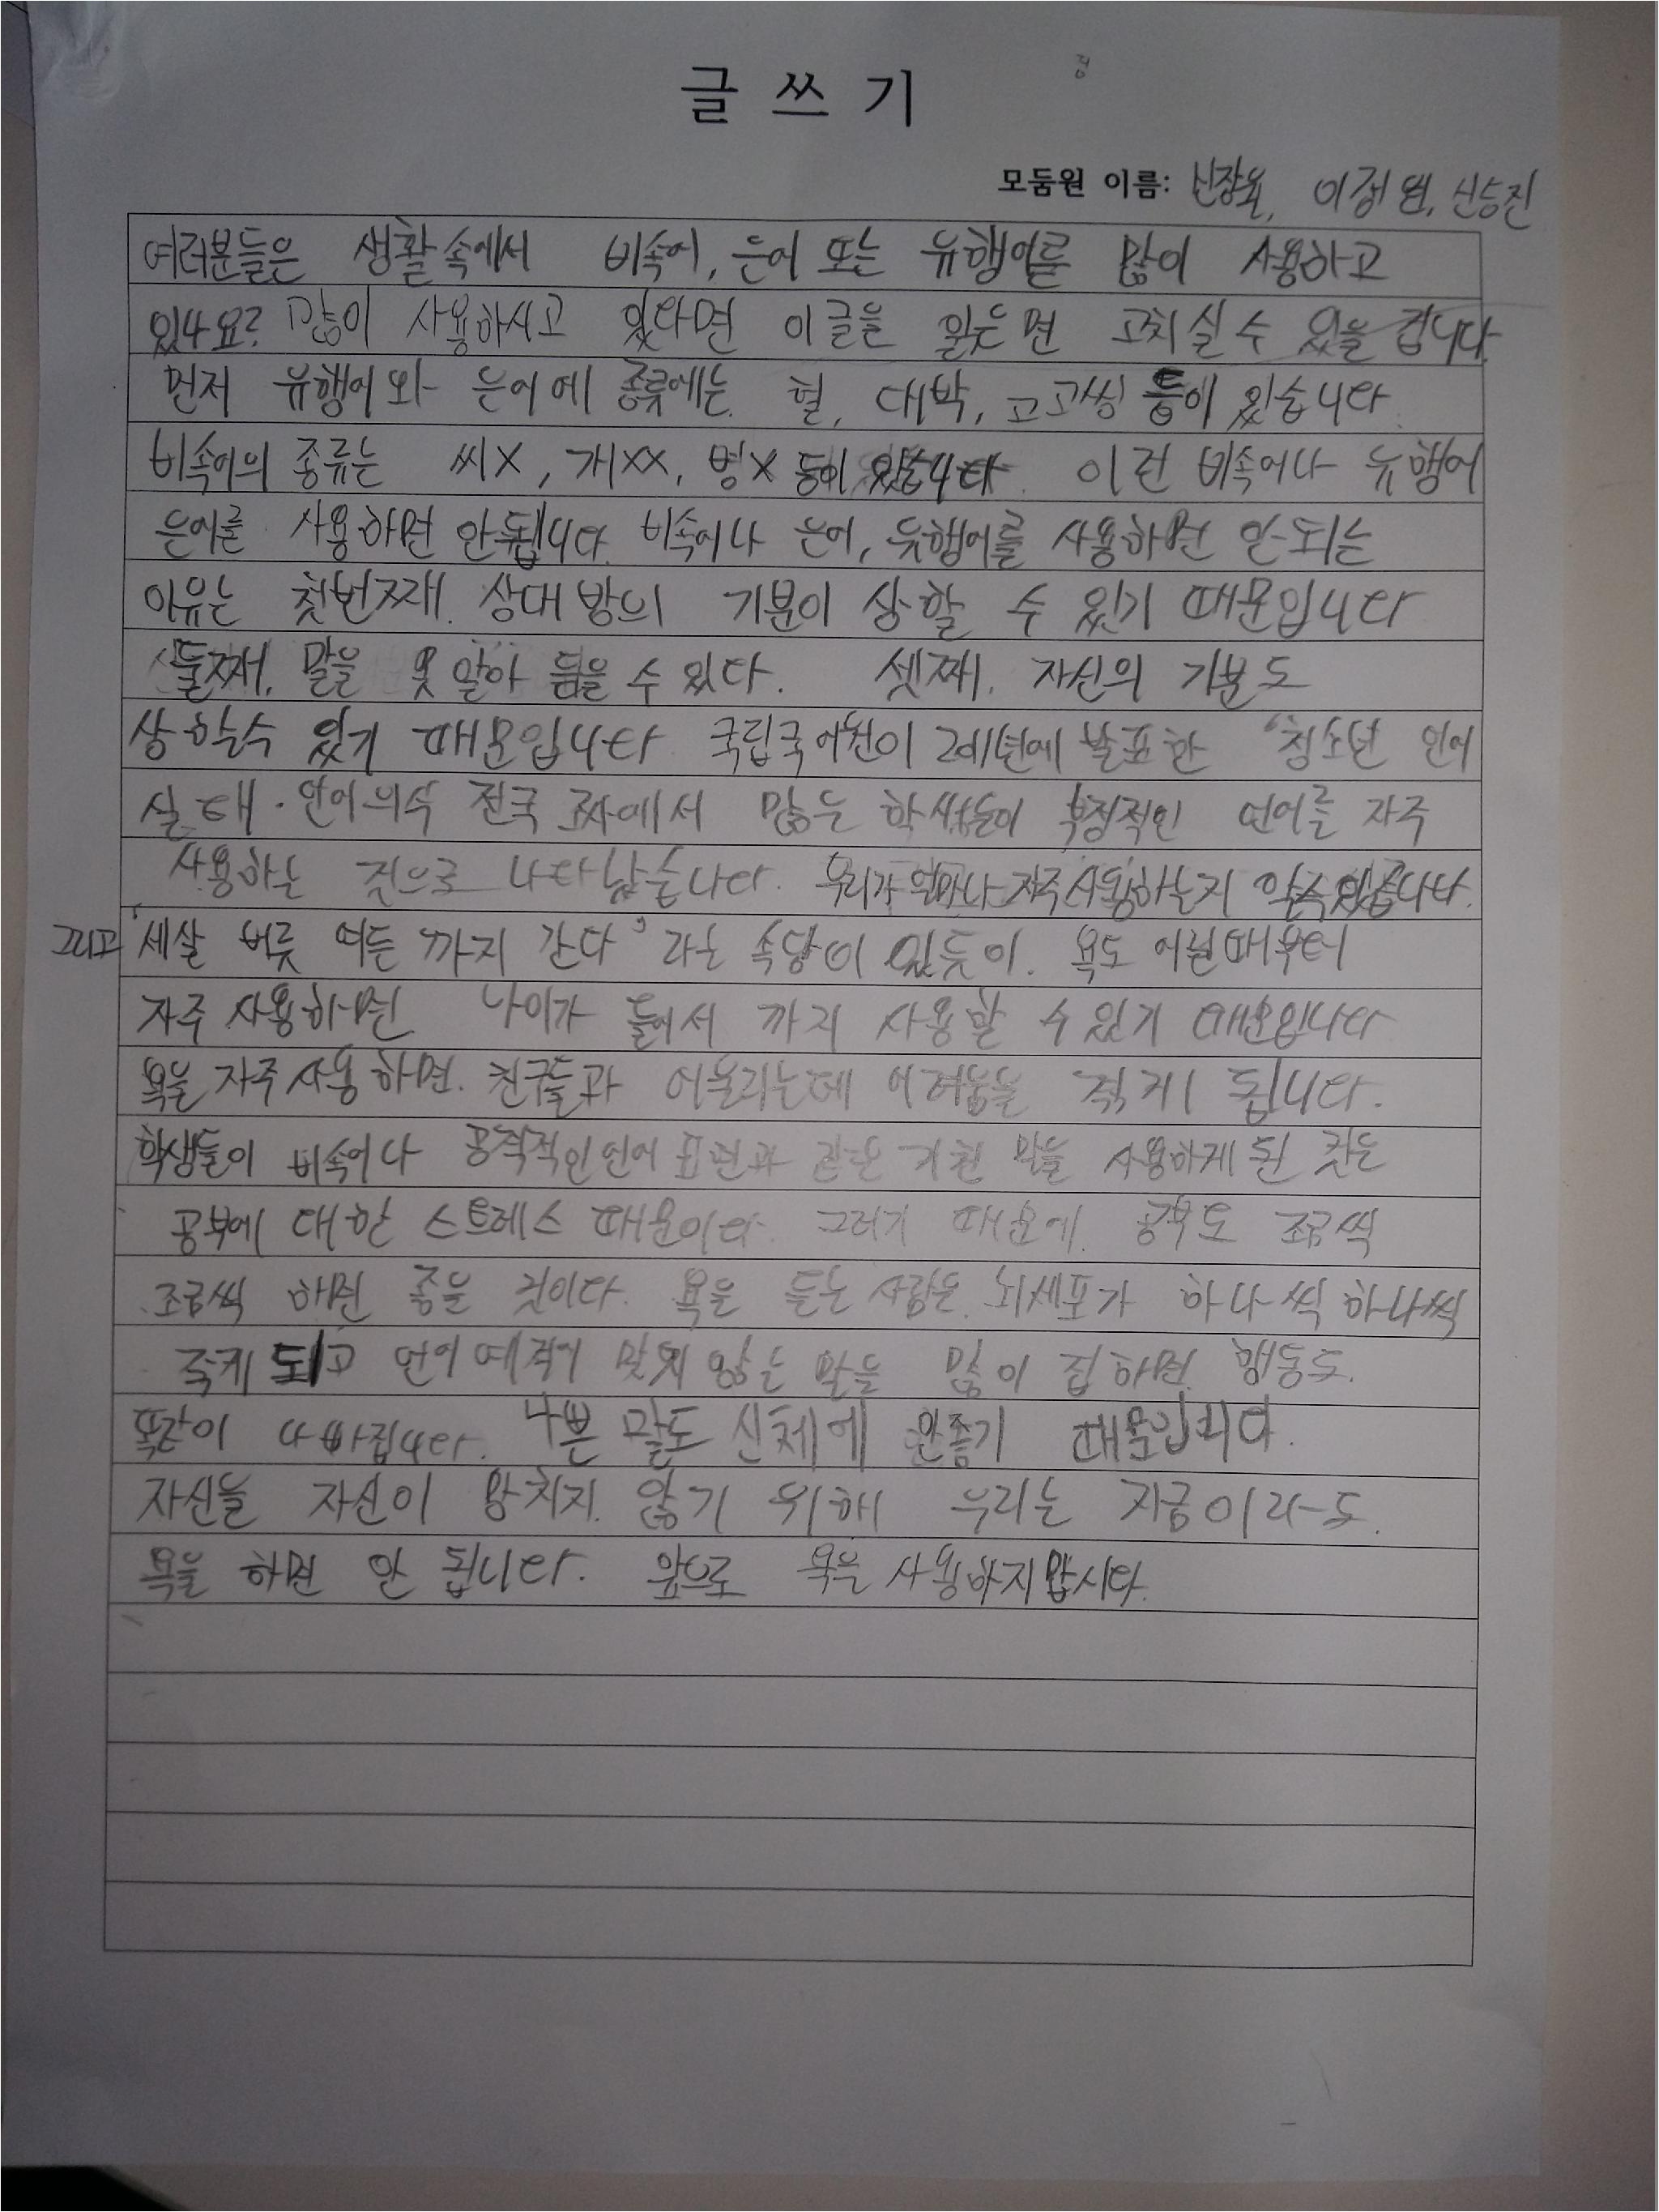 글 쓰 기
모둠원 이름: 신장율, 이정연, 신승진
여러분들은 생활 속에서 비속어, 은어 또는 유행어를 많이 사용하고
있나요? 많이 사용하시고 있다면 이글을 읽으면 고치실 수 있을 겁니다.
먼저 유행어와 은어에 종류에는 헐, 대박, 고고씽 등이 있습니다.
비속어의 종류는 씨X, 개XX, 병X 등이 있습니다. 이런 비속어나 유행어
은어를 사용하면 안됩니다. 비속어나 은어, 유행어를 사용하면 안되는
이유는 첫번째. 상대방의 기분이 상할 수 있기 때문입니다
둘째. 말을 못 알아 들을 수 있다. 셋째. 자신의 기분도
상할수 있기 때문입니다 국립국어원이 2011년에 발표한 '청소년 언어
실태·언어의식 전국 조사에서 많은 학생들이 부정적인 언어를 자주
사용하는 것으로 나타났습니다. 우리가 얼마나 자주 사용하는지 알수있습니다.
그리고 '세살 버릇 여든 까지 간다' 라는 속담이 있듯이. 욕도 어릴때부터
자주 사용하면 나이가 들어서 까지 사용할 수 있기 때문입니다
욕을 자주 사용하면. 친구들과 어울리는데 어려움을 겪게 됩니다.
학생들이 비속어나 공격적인 언어 표현과 같은 거친 말을 사용하게 된 것은
공부에 대한 스트레스 때문이다. 그러기 때문에. 공부도 조금씩
조금씩 하면 좋을 것이다. 욕을 듣는 사람은. 뇌세포가 하나씩 하나씩
죽게 되고 언어 예절에 맞지 않는 말을 많이 접하면. 행동도.
똑같이 나빠집니다. 나쁜 말도 신체에 안좋기 때문입니다.
자신을 자신이 망치지 않기 위해 우리는 지금이라도.
욕을 하면 안 됩니다. 앞으로 욕을 사용하지맙시다.